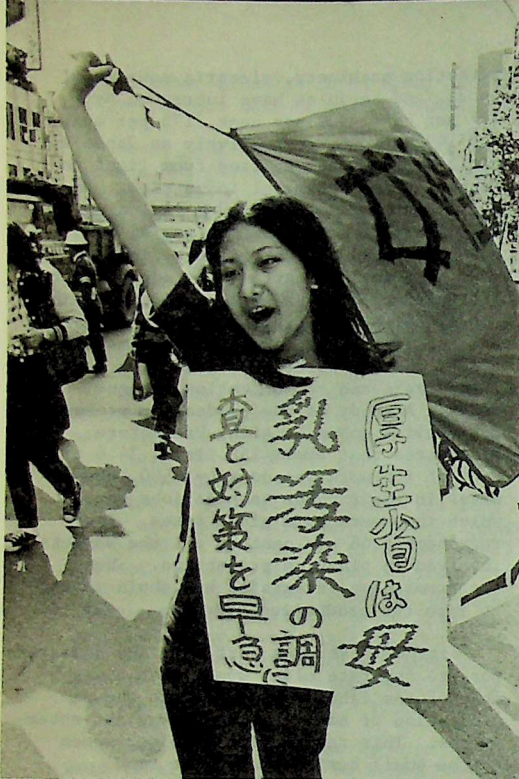 厚生省は母
乳汚染の調
査と対策を早急に